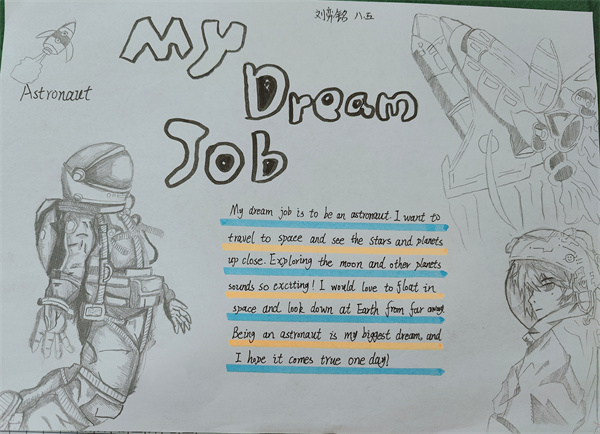 刘弈铭 八.五
My
Dream
Job
Astronaut
My dream job is to be an astronaut. I want to
travel to space and see the stars and planets
up close. Exploring the moon and other planets
sounds so exciting! I would love to float in
space and look down at Earth from far away.
Being an astronaut is my biggest dream, and
I hope it comes true one day!